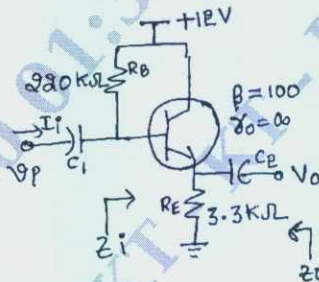 +12V
220KΩ
RB
β=100
r₀=∞
Ii
C1
C2
Vo
RE
3.3KΩ
Zi